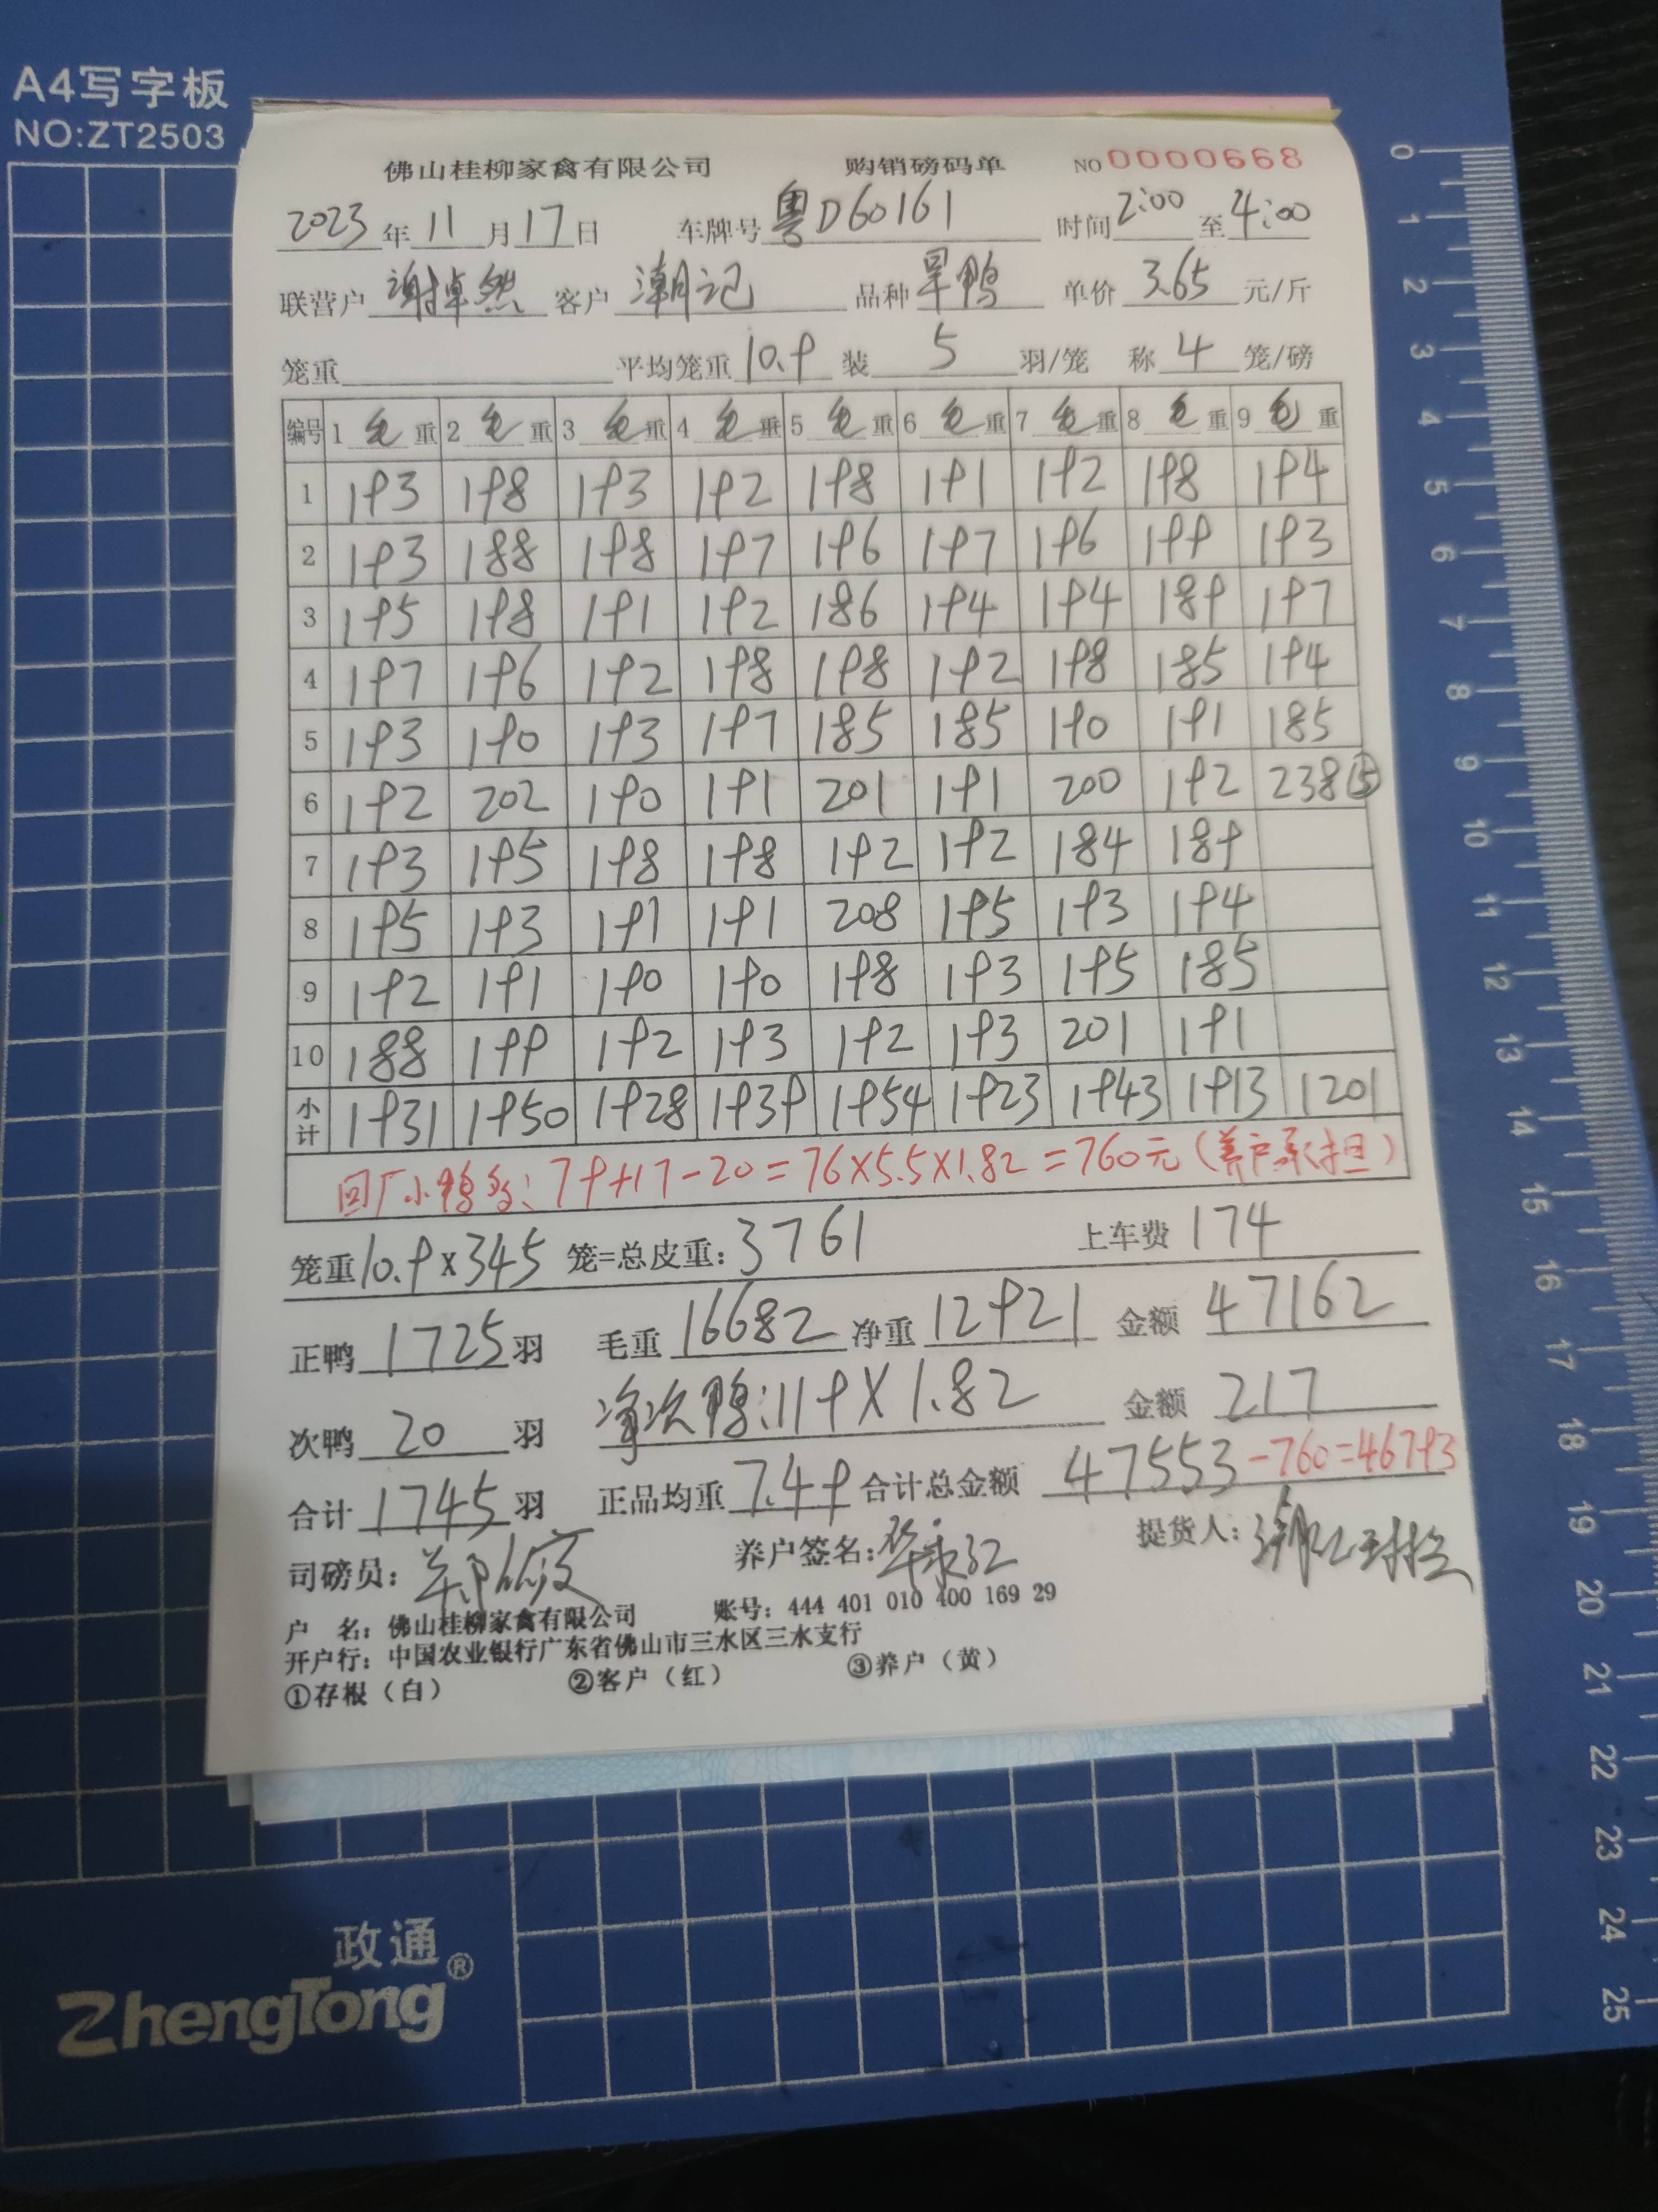 A4写字板
NO:ZT2503
佛山桂柳家禽有限公司 购销磅码单 NO 0000668
2023年11月17日 车牌号粤D60161 时间2:00至4:00
联营户谢掉然 客户潮记 品种旱鸭 单价3.65元/斤
笼重 平均笼重10.9 装5羽/笼 称4笼/磅
编号 1毛重 2毛重 3毛重 4毛重 5毛重 6毛重 7毛重 8毛重 9毛重
1 193 198 193 192 198 191 192 198 194
2 193 188 198 197 196 197 196 199 193
3 195 198 191 192 186 194 194 189 197
4 197 196 192 198 198 192 198 185 194
5 193 190 193 197 185 185 190 191 185
6 192 202 190 191 201 191 200 192 238⑤
7 193 195 198 198 192 192 184 189
8 195 193 191 191 208 195 193 194
9 192 191 190 190 198 193 195 185
10 188 199 192 193 192 193 201 191
小计 1931 1950 1928 1939 1954 1923 1943 1913 1201
回厂小鸭多:79+17-20=76×5.5×1.82=760元(养户承担)
笼重10.9×345 笼=总皮重:3761 上车费174
正鸭1725羽 毛重16682 净重12921 金额47162
次鸭20羽 净次鸭:119×1.82 金额217
合计1745羽 正品均重7.49 合计总金额47553-760=46793
司磅员: 养户签名: 提货人:
户 名:佛山桂柳家禽有限公司 账号:444 401 010 400 169 29
开户行:中国农业银行广东省佛山市三水区三水支行
①存根(白) ②客户(红) ③养户(黄)
政通®
ZhengTong
0
1
2
3
4
5
6
7
8
9
10
11
12
13
14
15
16
17
18
19
20
21
22
23
24
25